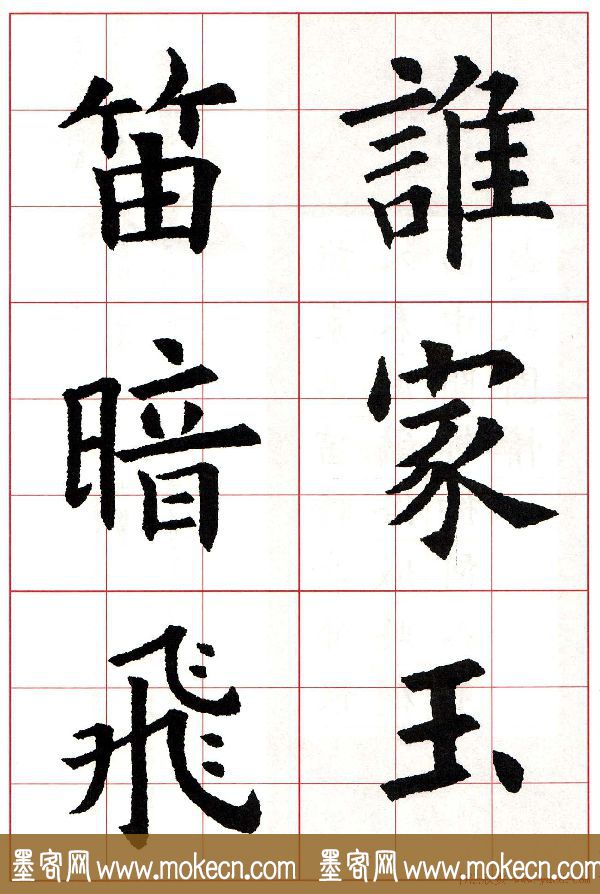 誰家玉
笛暗飛
墨客网 www.mokecn.com 墨客网 www.mokecn.com